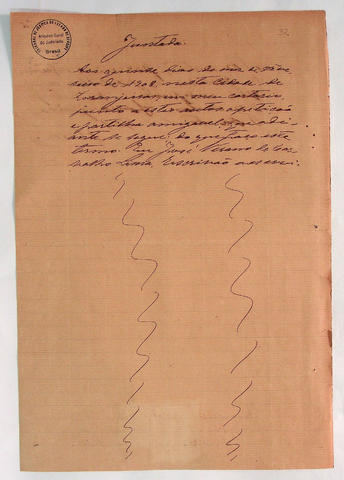 32
Juntada.
Aos quinze dias do mez de
de 1908, nesta Cidade de
Laranjeiras em meu cartorio
junto a estes autos a petição
e partilha amigavel que adi-
ante se segue; do que faço este
termo. Eu José
Lima, Escrivão escrevi.
Arquivo Geral
do Judiciário
Brasil